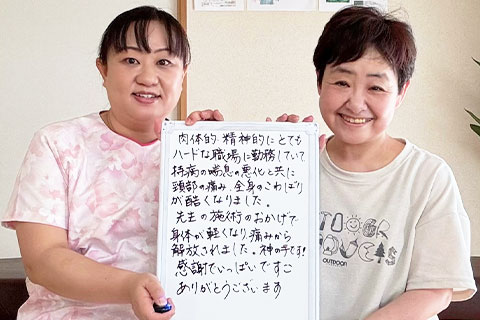 肉体的 精神的にとても
ハードな職場に勤務していて
持病の喘息の悪化と共に
頚部の痛み、全身のこわばり
が酷くなりました。
先生の施術のおかげで
身体が軽くなり、痛みから
解放されました。神の手です!
感謝でいっぱいですこ
ありがとうございます
OUTDOOR